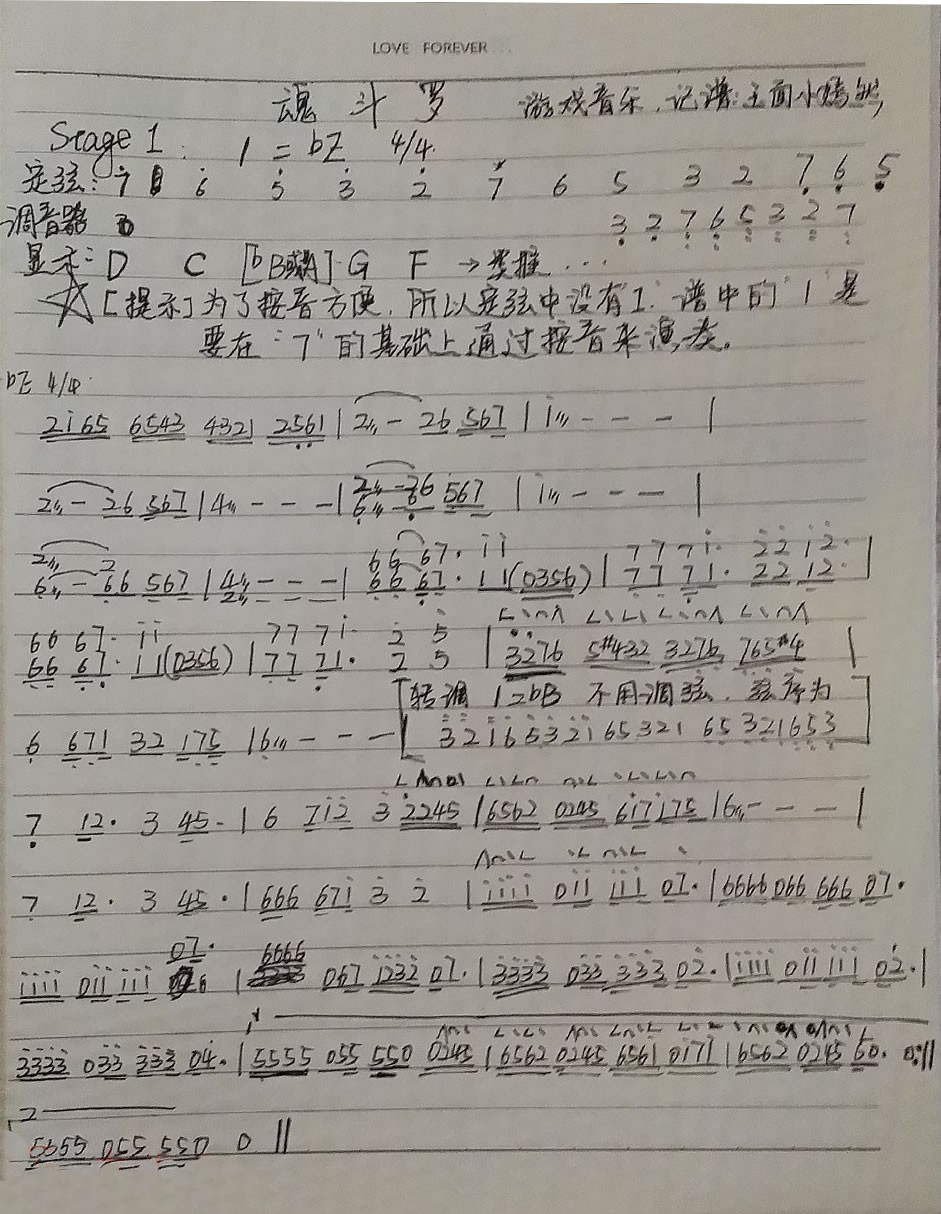 LOVE FOREVER
魂斗罗 游戏音乐.记谱:王面小
Stage 1: 1=bE 4/4
定弦: 7 6 5 3 2 7 6 5 3 2 7 6 5
调音器 3 2 7 6 5 3 2 7
显示: D C [bB或#A] G F → 类推...
☆[提示]为了按音方便,所以定弦中没有1.谱中的"1"是
要在"7"的基础上通过按音来演奏。
bE 4/4
2i65 6543 4321 2561 | 2 - 26 567 | i - - - |
2 - 26 567 | 4 - - - | 2 - 26 567 | i - - - |
6 - 66 567 | 4 - - - | 66 67· 11(0356) | 77 71· 22 12· |
66 67· 11(0356) | 77 71· 2 5 | 3276 5#432 3276 765#4 |
[转调 1=bB 不用调弦.弦序为
6 671 32 175 | 6 - - - 3 2 1 6 5 3 2 1 65 321 65 321653]
7 12· 3 45· | 6 712 3 2245 | 6562 0245 617175 | 6 - - - |
7 12· 3 45· | 666 671 3 2 | 1111 011 111 07· | 6666 066 666 07·
1111 011 111 07· | 6666 067 1232 07· | 3333 033 333 02· | 1111 011 111 02· |
3333 033 333 04· | 5555 055 550 0245 | 6562 0245 6561 0171 | 6562 0245 60· 0 :||
2
5555 055 550 0 ||